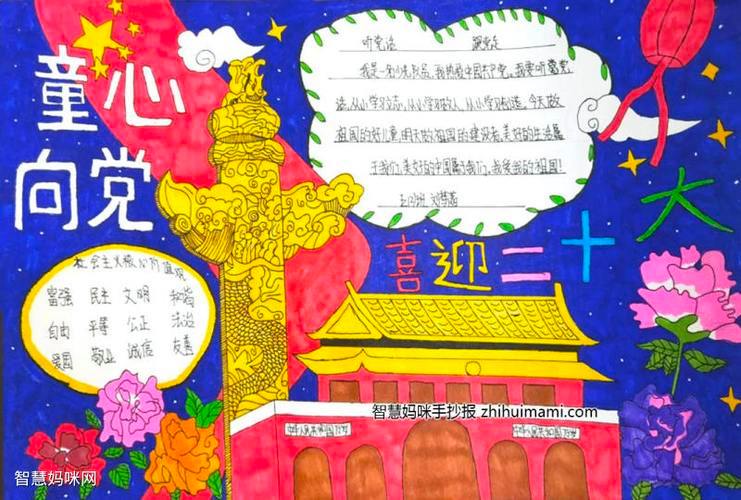 童心
向党
听党话 跟党走
我是一名少先队员,我热爱中国共产党,我要听党
话,从小学习立志,从小学习做人,从小学习创造,今天做
祖国的好儿童,明天做祖国的建设者,美好的生活属
于我们,美好的中国属于我们,我爱我的祖国!
喜迎二十大
社会主义核心价值观
富强 民主 文明 和谐
自由 平等 公正 法治
爱国 敬业 诚信 友善
智慧妈咪手抄报 zhihuimami.com
智慧妈咪网